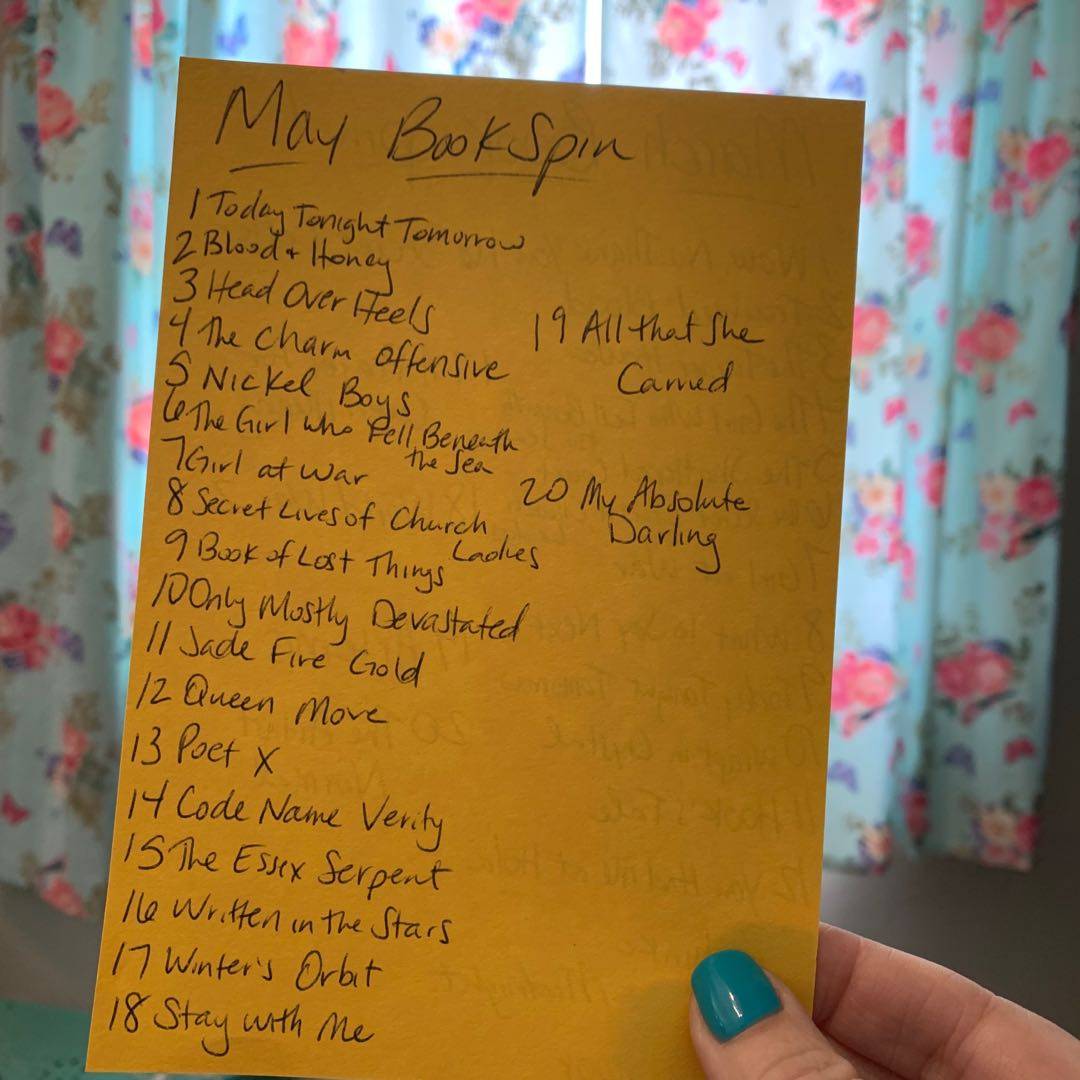 May BookSpin
1 Today Tonight Tomorrow
2 Blood + Honey
3 Head Over Heels
4 The Charm Offensive
5 Nickel Boys
6 The Girl who Fell Beneath
the Sea
7 Girl at War
8 Secret Lives of Church
Ladies
9 Book of Lost Things
10 Only Mostly Devastated
11 Jade Fire Gold
12 Queen Move
13 Poet X
14 Code Name Verity
15 The Essex Serpent
16 Written in the Stars
17 Winter's Orbit
18 Stay with Me
19 All that She
Carried
20 My Absolute
Darling